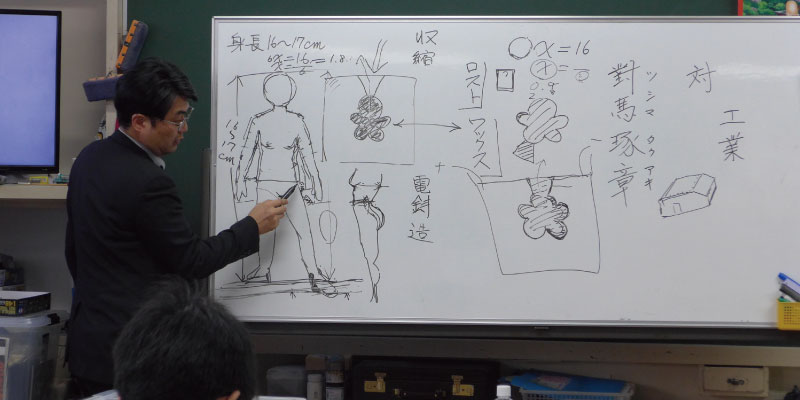 身長16〜17cm
6x=16
x=16/6=1.8
16〜17cm
収縮
ロスト
ワックス
電鋳造
x=16
0.8
對馬琢章
ツシマ タクアキ
対
工業